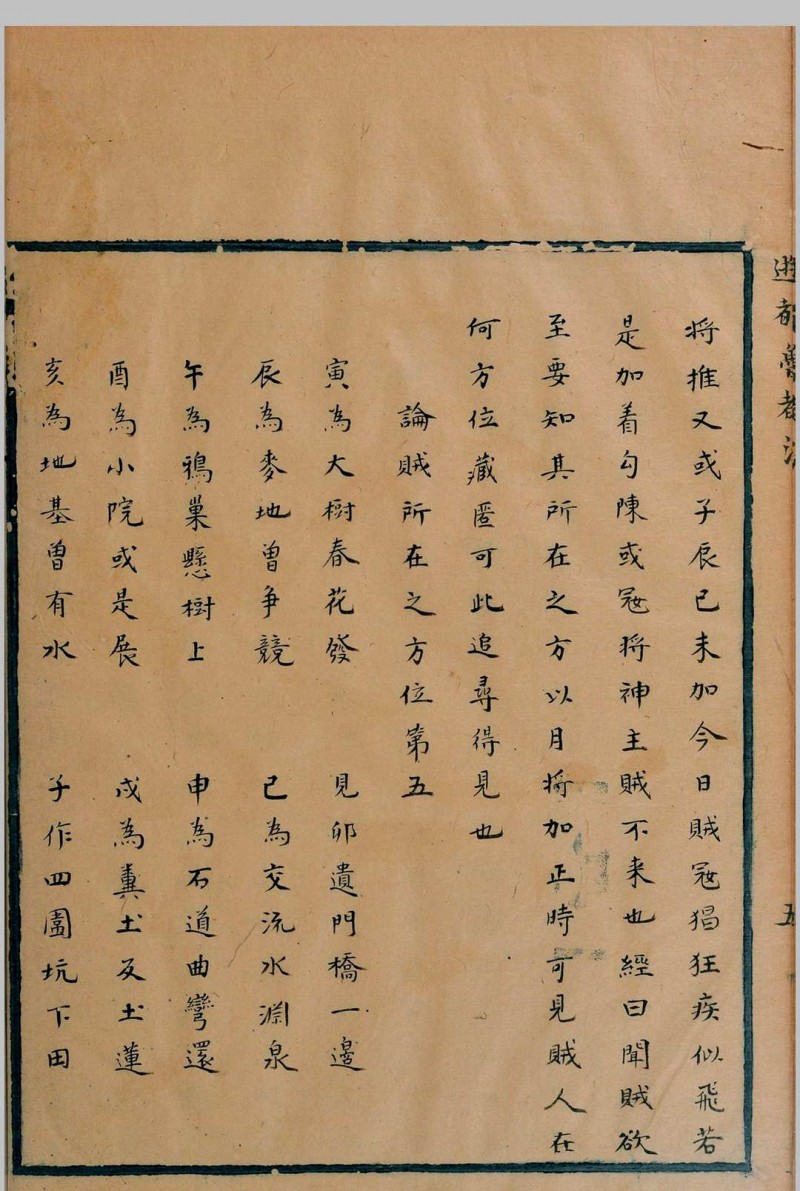 遊都魯都法
五
將推又或子辰巳未加今日賊冦猖狂疾似飛若
是加着勾陳或冦將神主賊不来也經曰聞賊欲
至要知其所在之方以月將加正時可見賊人在
何方位藏匿可此追尋得見也
論賊所在之方位第五
寅為大樹春花發 見卯遺門橋一邊
辰為麥地曾争競 巳為交流水淵泉
午為鴉巢懸樹上 申為石道曲彎還
酉為小院或是展 戌為糞土及土蓮
亥為地基曾有水 子作四園坑下田